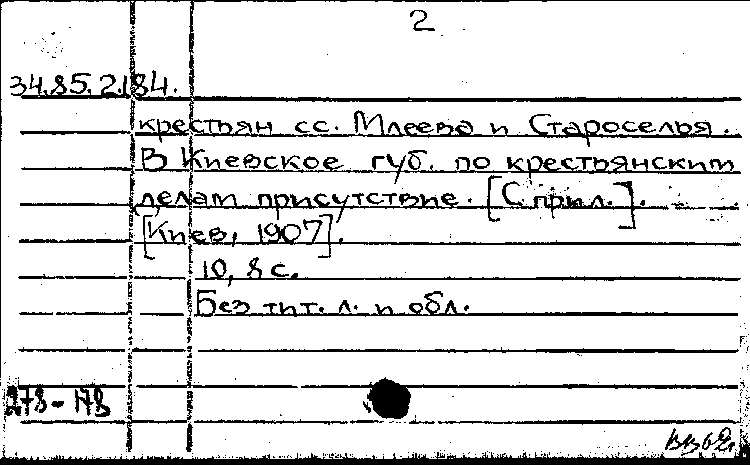 2
34.85.2.184.
крестьян сс. Млеева и Староселья.
В Киевское губ. по крестьянским
делам присутствие. [С прил.].
[Киев, 1907].
10, 8 с.
Без тит. л. и обл.
278-178